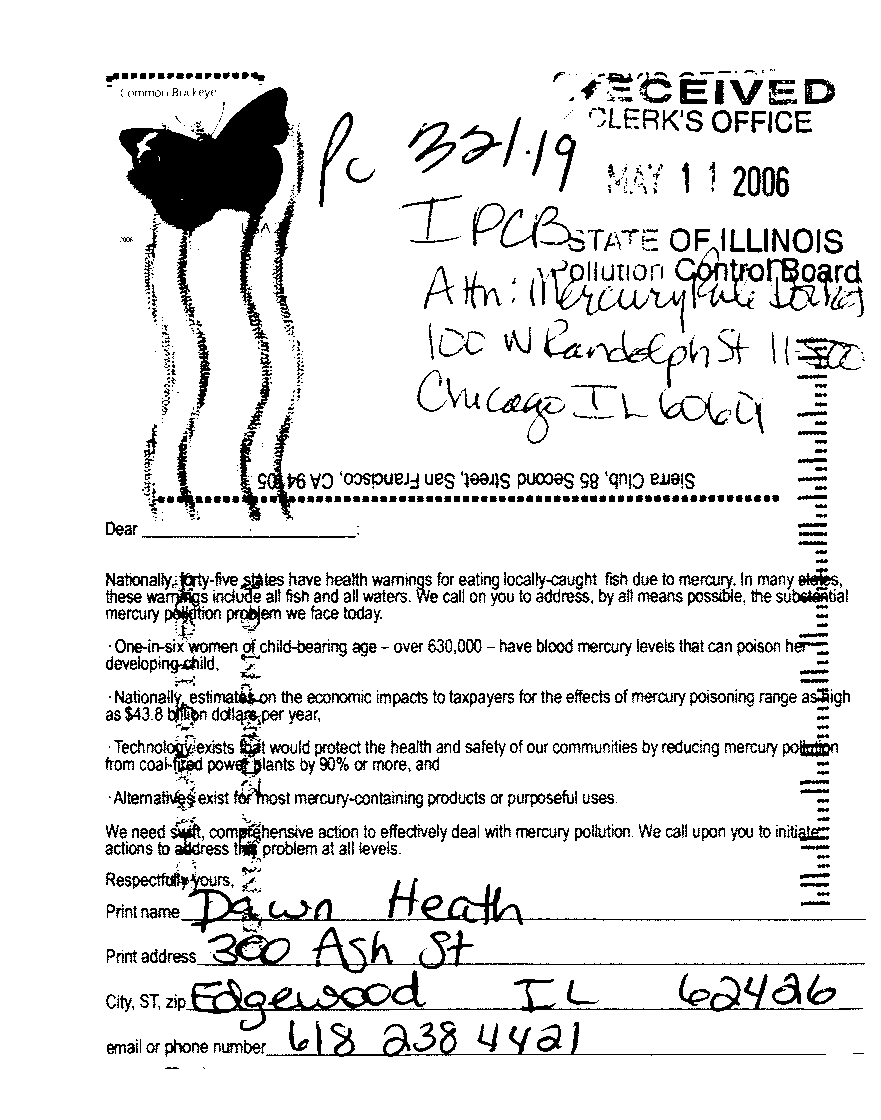 Common Buckeye
USA
2006
RECEIVED
CLERK'S OFFICE
MAY 11 2006
STATE OF ILLINOIS
Pollution Control Board
Pc 321.19
IPCB
Attn: Mercury Rule
100 W Randolph St 11-500
Chicago IL 60601
Sierra Club, 85 Second Street, San Francisco, CA 94105
Dear :
Nationally, forty-five states have health warnings for eating locally-caught fish due to mercury. In many states,
these warnings include all fish and all waters. We call on you to address, by all means possible, the substantial
mercury pollution problem we face today.
· One-in-six women of child-bearing age – over 630,000 – have blood mercury levels that can poison her
developing child,
· Nationally, estimates on the economic impacts to taxpayers for the effects of mercury poisoning range as high
as $43.8 billion dollars per year,
· Technology exists that would protect the health and safety of our communities by reducing mercury pollution
from coal-fired power plants by 90% or more, and
· Alternatives exist for most mercury-containing products or purposeful uses.
We need swift, comprehensive action to effectively deal with mercury pollution. We call upon you to initiate
actions to address this problem at all levels.
Respectfully yours,
Print name Dawn Heath
Print address 300 Ash St
City, ST, zip Edgewood IL 62426
email or phone number 618 238 4421